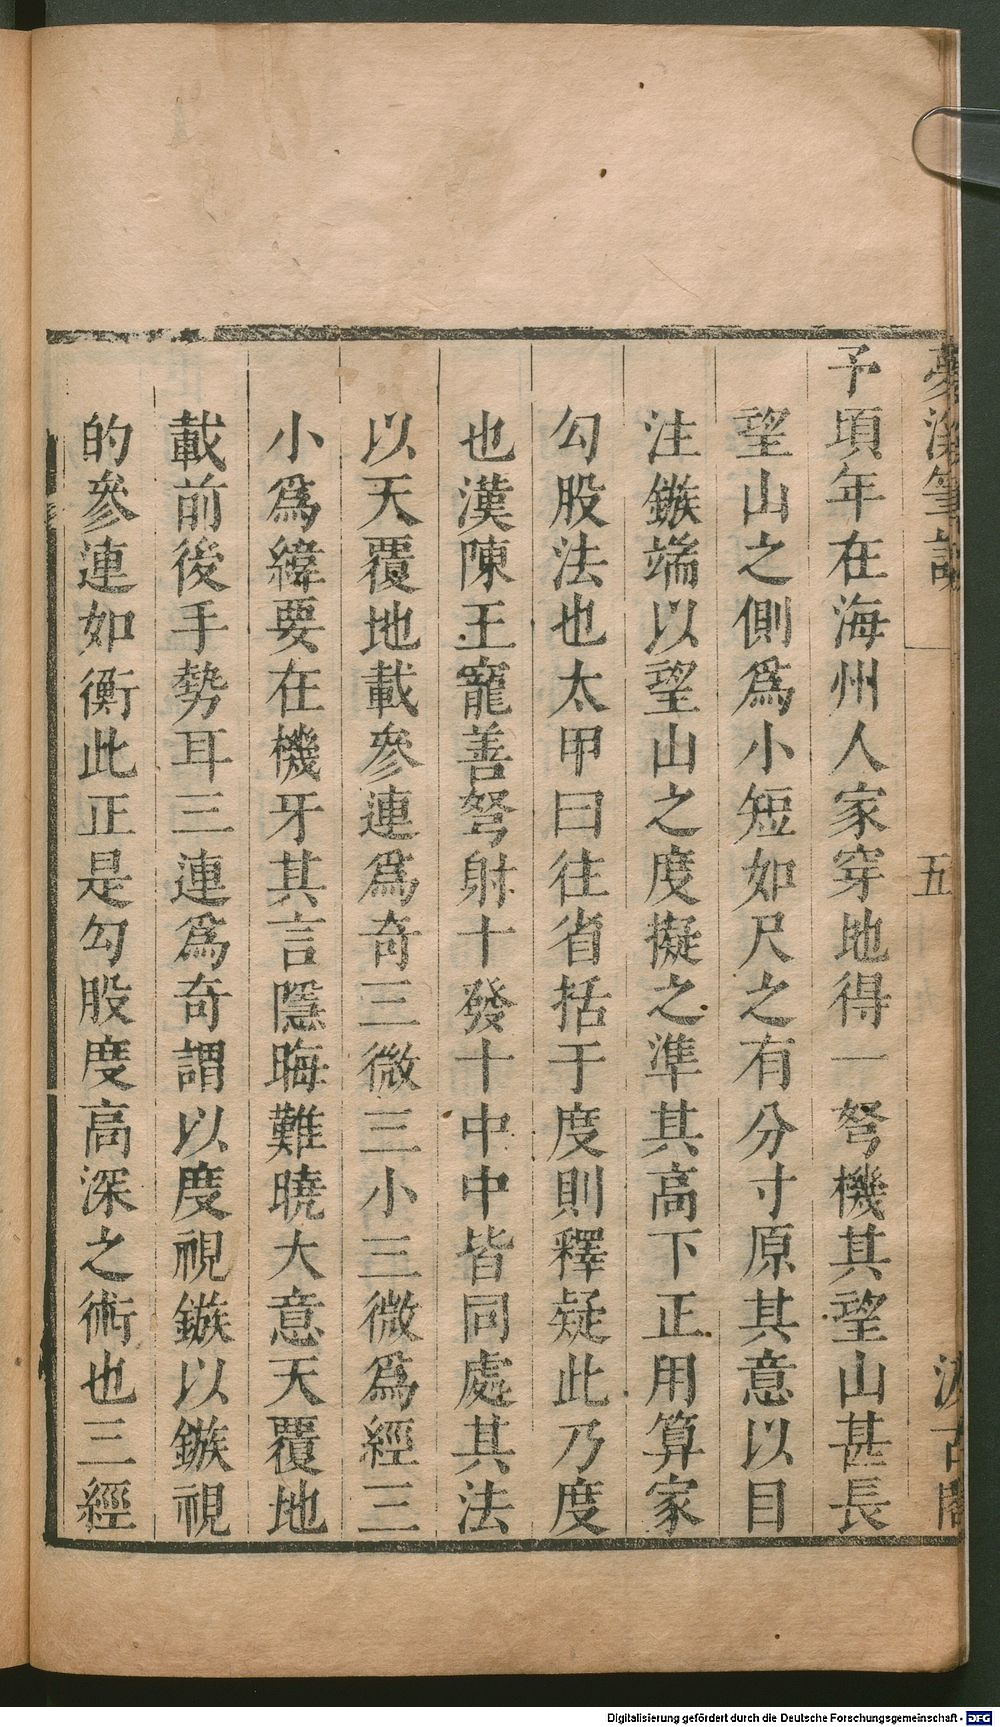 夢溪筆談 五 汲古閣
予頃年在海州人家穿地得一弩機其望山甚長
望山之側爲小短如尺之有分寸原其意以目
注鏃端以望山之度擬之準其高下正用算家
勾股法也太甲曰往省括于度則釋疑此乃度
也漢陳王寵善弩射十發十中中皆同處其法
以天覆地載參連爲奇三微三小三微爲經三
小爲緯要在機牙其言隱晦難曉大意天覆地
載前後手勢耳三連爲奇謂以度視鏃以鏃視
的參連如衡此正是勾股度高深之術也三經
Digitalisierung gefördert durch die Deutsche Forschungsgemeinschaft - DFG